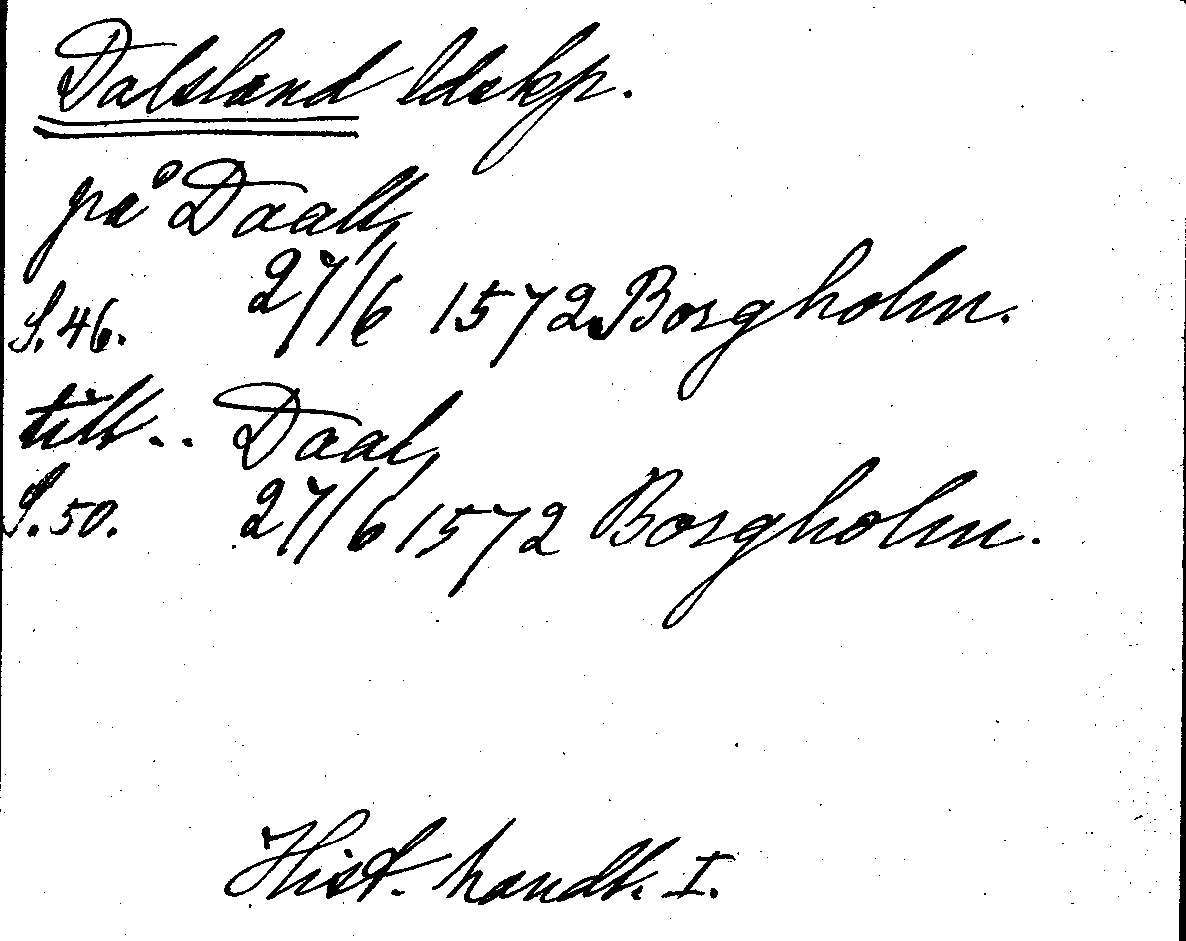 Dalsland ldskp.
på Daall,
S. 46. 27/6 1572. Borgholm.
till.. Daal,
S. 50. 27/6 1572 Borgholm.
Hist. handl. I.